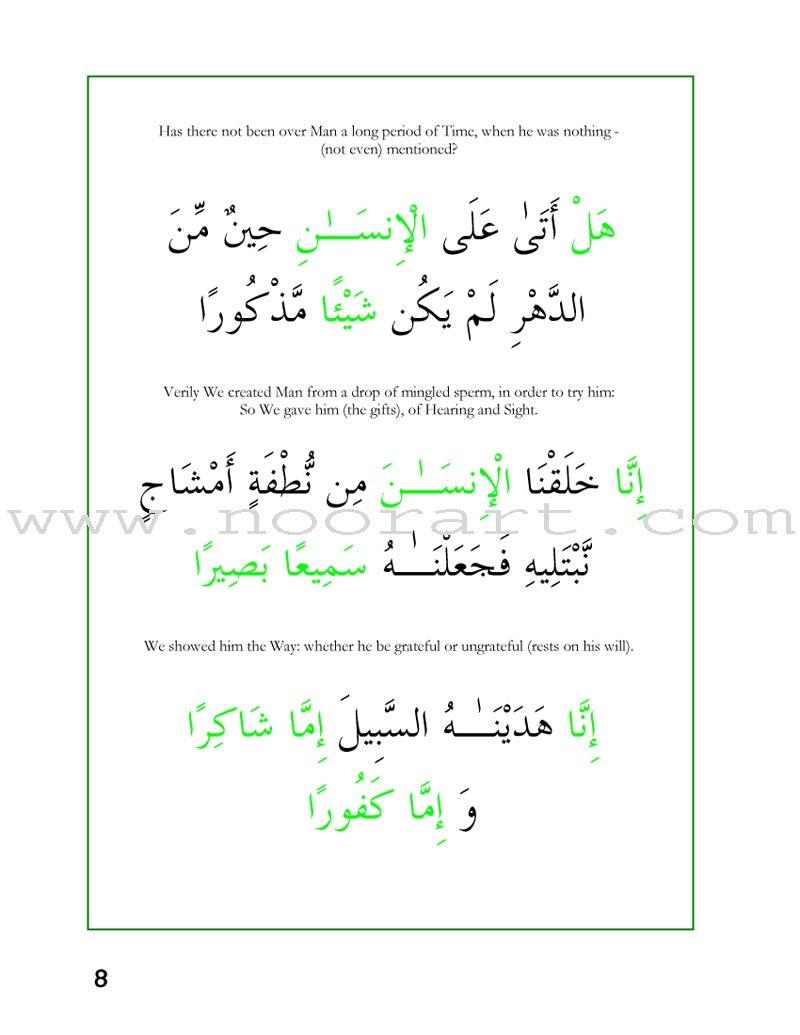 Has there not been over Man a long period of Time, when he was nothing -
(not even) mentioned?
هَلْ أَتَىٰ عَلَى الْإِنسَـٰـنِ حِينٌ مِّنَ
الدَّهْرِ لَمْ يَكُن شَيْئًا مَّذْكُورًا
Verily We created Man from a drop of mingled sperm, in order to try him:
So We gave him (the gifts), of Hearing and Sight.
إِنَّا خَلَقْنَا الْإِنسَـٰـنَ مِن نُّطْفَةٍ أَمْشَاجٍ
www.noorart.com
نَّبْتَلِيهِ فَجَعَلْنَـٰـهُ سَمِيعًا بَصِيرًا
We showed him the Way: whether he be grateful or ungrateful (rests on his will).
إِنَّا هَدَيْنَـٰـهُ السَّبِيلَ إِمَّا شَاكِرًا
وَ إِمَّا كَفُورًا
8